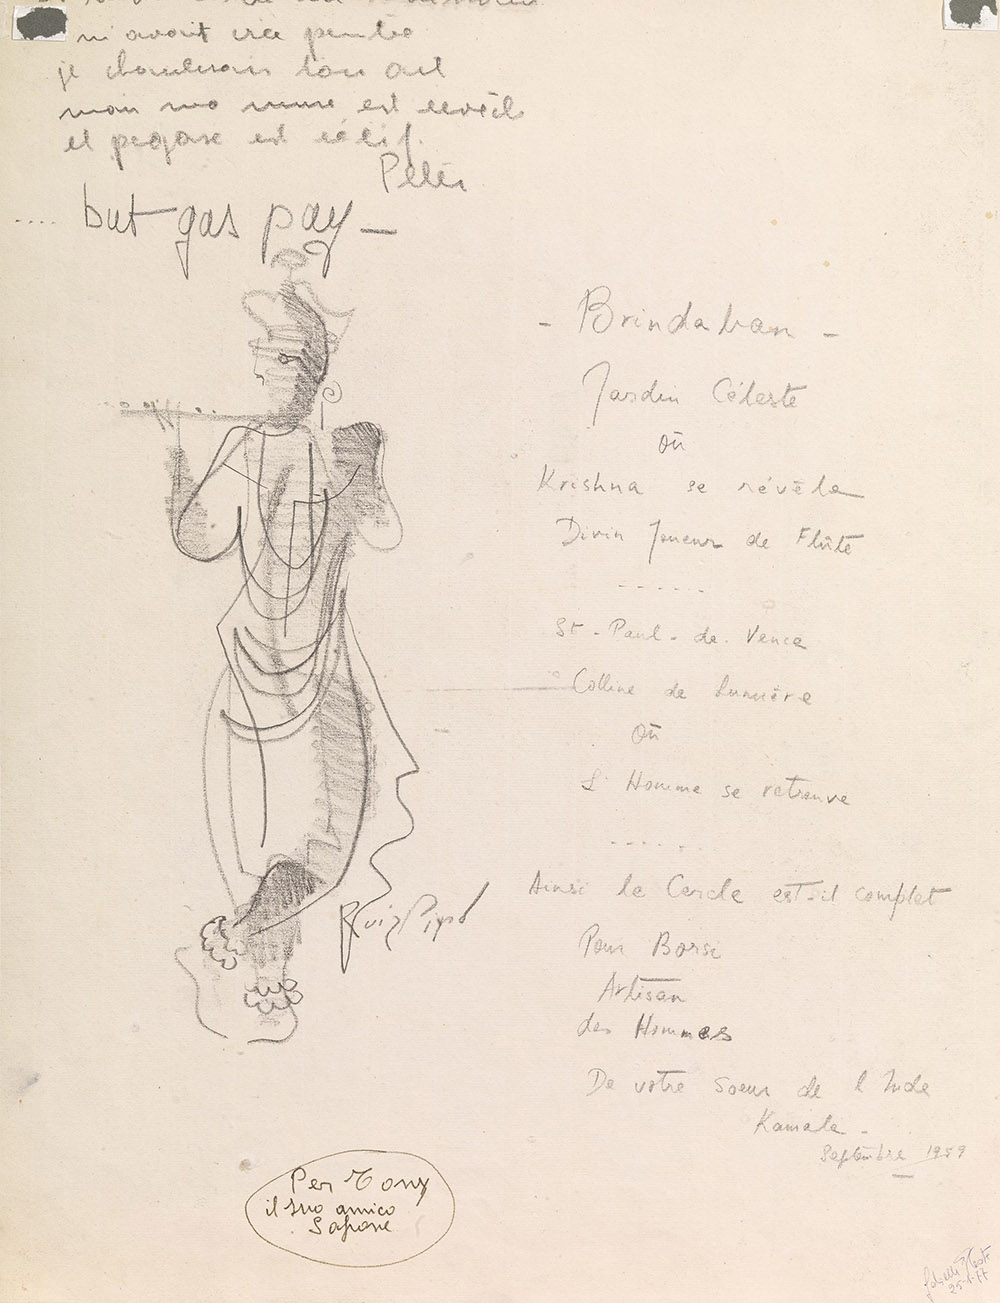 ni avait
je chanterais ton
mais ma muse est
et pegase est rétif.
Peter
.... but gas pay —
- Brindaban -
Jardin Céleste
où
Krishna se révèle
Divin Joueur de Flûte
------
St-Paul-de Vence
Colline de Lumière
Où
L'Homme se retrouve
------
Ainsi le Cercle est-il complet
Pour Borsi
Artisan
des Hommes
De votre soeur de l'Inde
Kamala -
Septembre 1959
Ruiz Pipó
Per Tony
il suo amico
Sapone